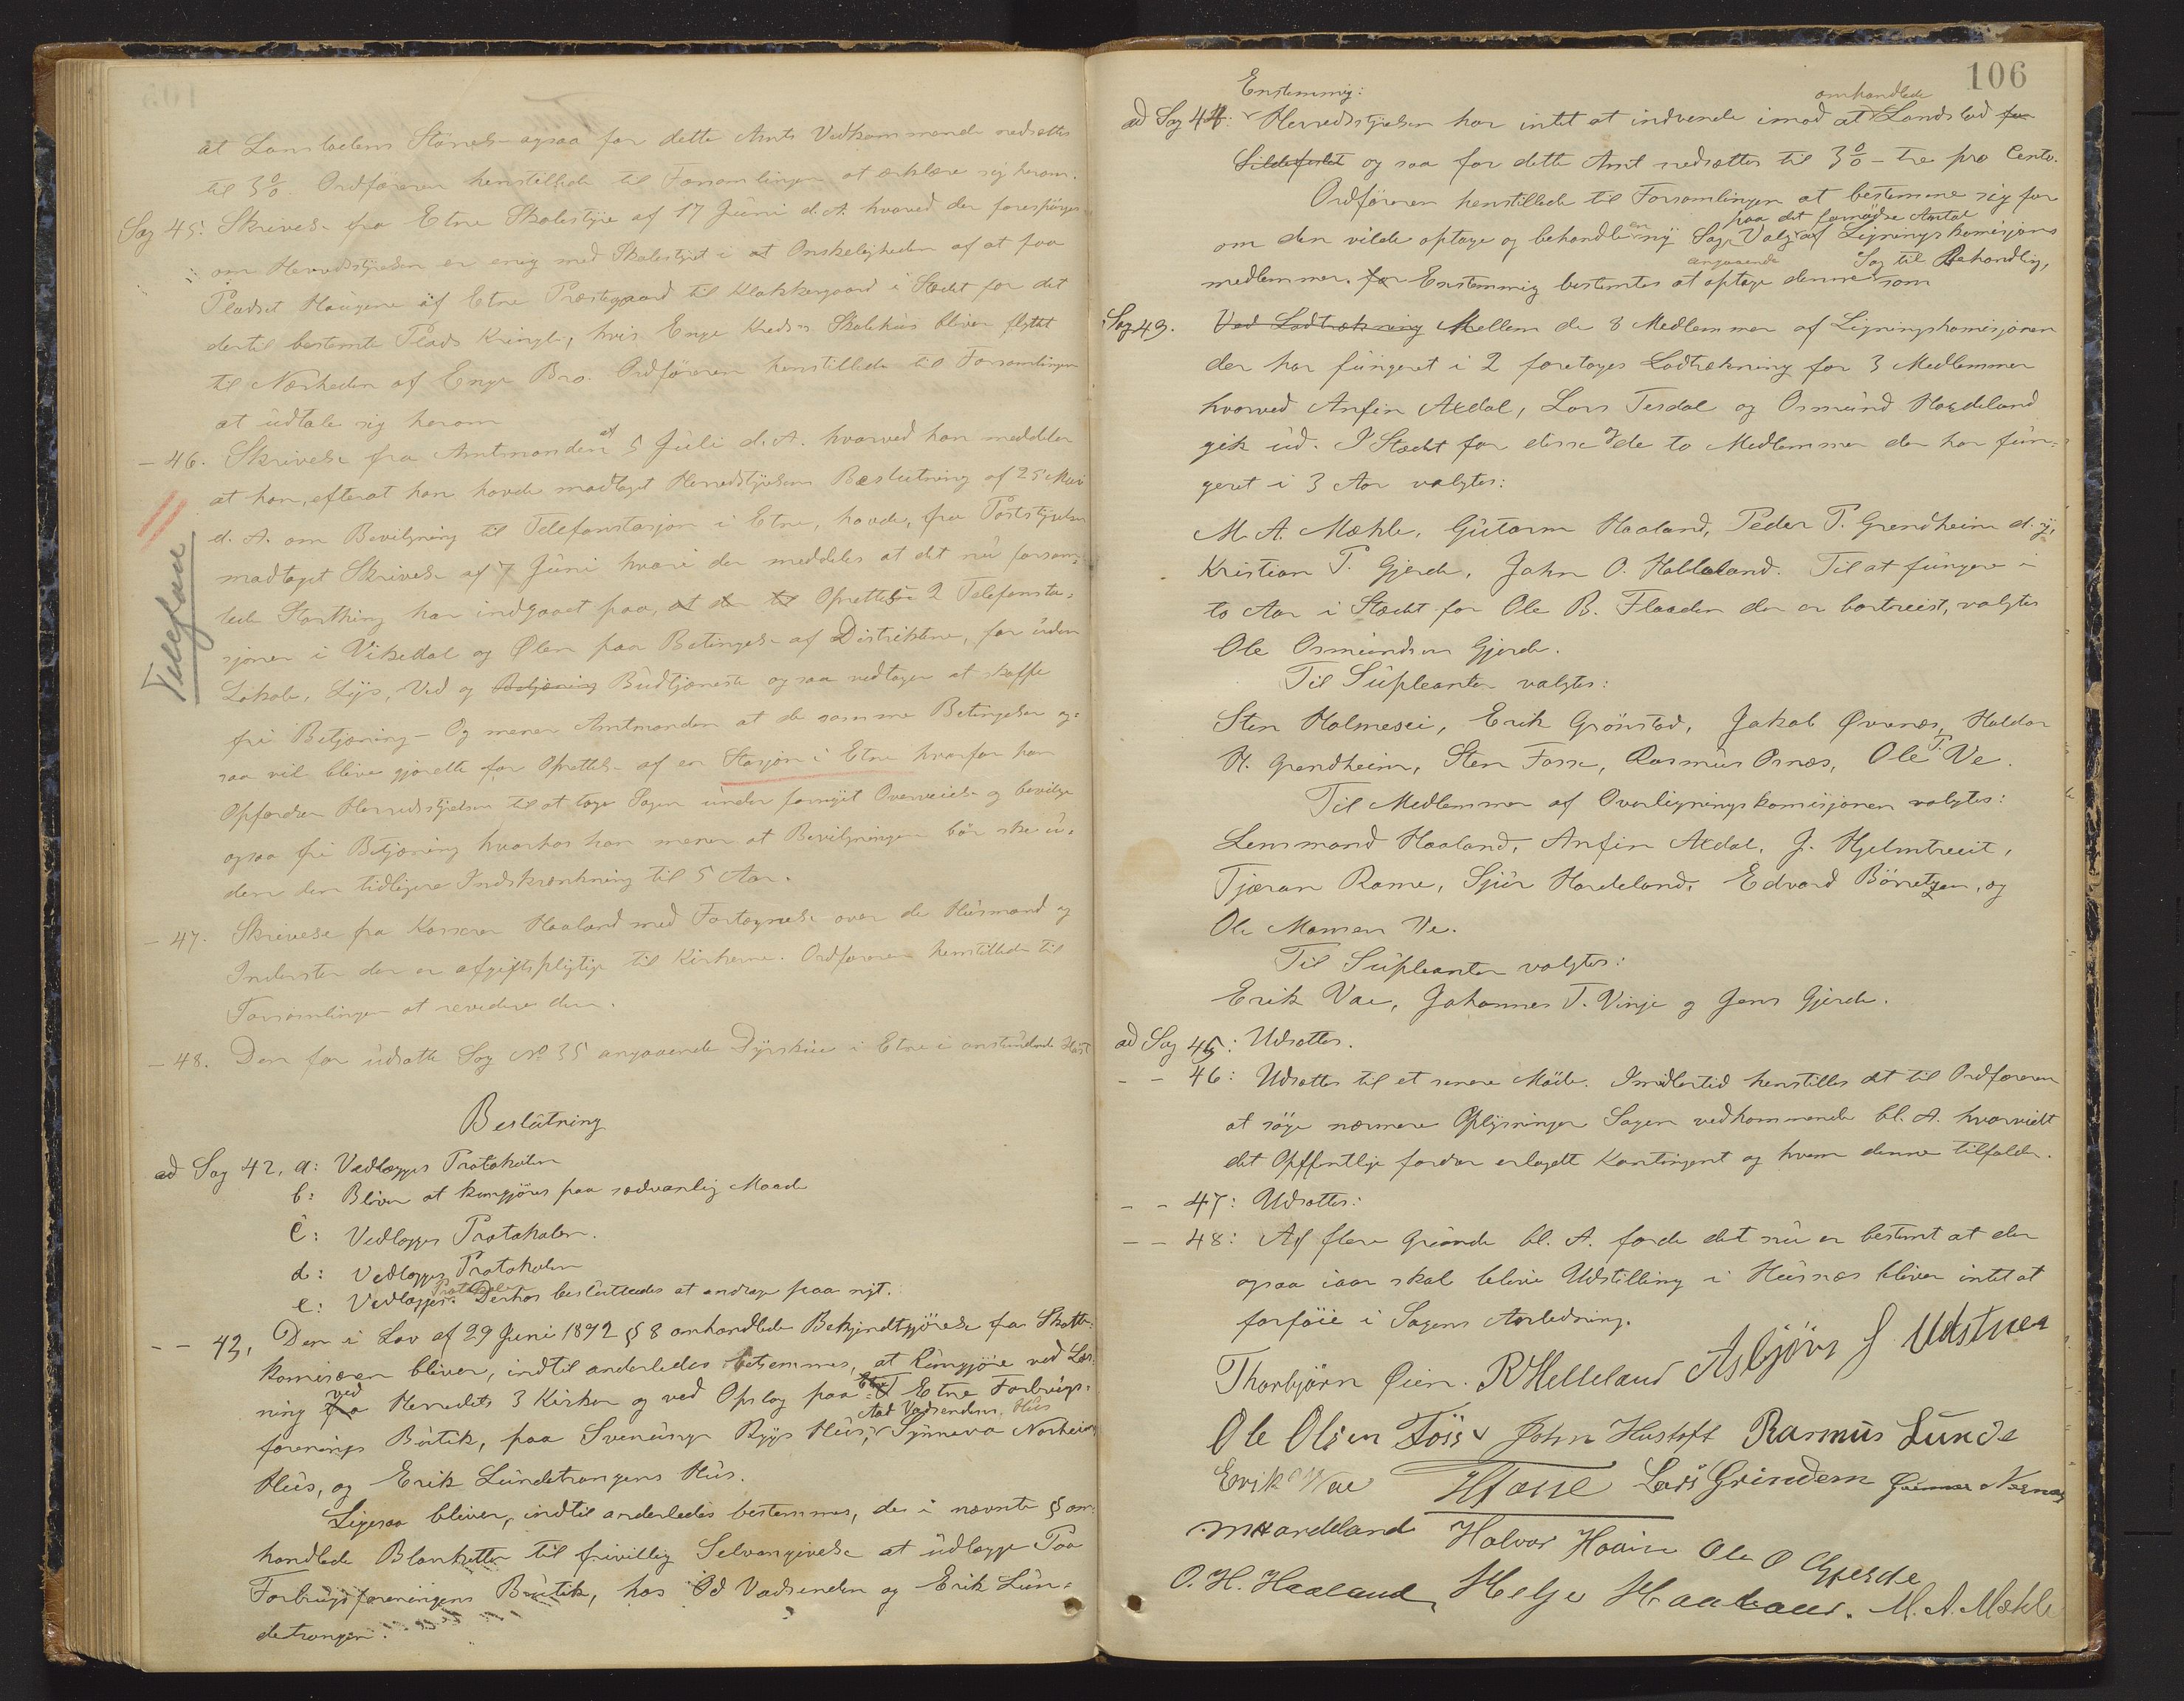 at Lanstoldens Större ogsaa for dette Amts Vedkommende nedsættes
til 3 %. Ordföreren henstillede til Forsamlingen at erklære sig herom.
Sag 45. Skrivelse fra Etne Skolestyre af 17 Juni d. A. hvorved der forespörges
om Herredsstyrelsen er enig med Skolestyret i at Onskeligheden af at faa
Pladset Haugene af Etne Præstegaard til Klokkergaard i Stedet for det
dertil bestemte Plads Kringle, hvis Enge Kreds's Skolehus bliver flyttet
til Nærheden af Enge Bro. Ordföreren henstillede til Forsamlingen
at udtale sig herom
- 46. Skrivelse fra Amtmanden af 5 Juli d. A. hvorved han meddeler
at han, efterat han havde modtaget Herredsstyrelsens Beslutning af 25 Mai
d. A. om Bevilgning til Telefonstasjon i Etne, havde, fra Poststyrelsen
modtaget Skrivelse af 7 Juni hvori der meddeles at det nu forsam-
lede Storthing har indgaaet paa, at der til Oprettelse 2 Telefonsta-
sjoner i Vikedal og Ølen paa Betingelse af Distriktene, for uden
Lokale, Lys, Ved og Betjening Budtjeneste ogsaa vedtager at skaffe
fri Betjæning - Og mener Amtmanden at de samme Betingelser og-
saa vil blive gjældte for Oprettelse af en Stasjon i Etne hvorfor han
Opfordrer Herredsstyrelsen til at tage Sagen under fornyet Overveielse og bevilge
ogsaa fri Betjæning hvorhos han mener at Bevilgningen bör ske u-
den den tidligere Indskrænkning til 5 Aar.
Telefone
- 47. Skrivelse fra Kasserer Haaland med Fortegnelse over de Husmænd og
Inderster der er afgiftspligtige til Kirkerne. Ordföreren henstillede til
Forsamlingen at revidere den.
- 48. Den før udsatte Sag No 35 angaaende Dyrskue i Etne i anstundende Höst
Beslutning
ad Sag 42. a: Vedlægges Protokolen
b: Bliver at kungjöres paa sædvanlig Maade
c: Vedlægges Protokolen.
d: Vedlægges Protokolen
e: Vedlægges Protokolen. Derhos besluttedes at andrage paa nyt.
- - 43. Den i Lov af 29 Juni 1892 § 8 omhandlede Bekjendtgjörelse fra Skatte-
komisæren bliver, indtil anderledes bestemmes, at kungjöre ved Læs-
ning fra ved Herredets 3 Kirker og ved Opslag paa Etne Forbrugs-
forenings Butik, paa Sveinung Rygs Hus, Aad Vadsendens Hus Synneva Norheims
Hus, og Erik Lundetrangens Hus.
Ligesaa bliver, indtil anderledes bestemmes, de i nævnte § om-
handlede Blanketter til frivillig Selvangivelse at udlægge Paa
Forbrugsforeningens Butik, hos Od Vadsenden og Erik Lun-
detrangen.
106
Enstemmig:
ad Sag 44: Herredsstyrelsen har intet at indvende imod at omhandlede Landstold fra
Sildefisket og saa for dette Amt nedsættes til 3 % - tre pro Cento.
Ordföreren henstillede til Forsamlingen at bestemme sig for
om den vilde optage og behandle en ny Sag, Valg paa det fornødne Antal af Ligningskomisjons
medlemmer. for Enstemmig bestemtes at optage denne angaaende Sag til Behandling, som
Sag 49. Ved Lodtrækning Mellem de 8 Medlemmer af Ligningskomisjonen
der har fungeret i 2 foretages Lodtrækning for 3 Medlemmer
hvorved Anfin Axdal, Lars Tesdal og Osmund Hardeland
gik ud. I Stedet for disse og de to Medlemmer der har fun-
geret i 3 Aar valgtes:
M. A. Mæhle, Gutorm Haaland, Peder P. Grendheim d. y.,
Kristian P. Gjerde, John O. Halleland. Til at fungere i
to Aar i Stedet for Ole B. Flaaden der er bortreist, valgtes
Ole Osmundsen Gjerde.
Til Supleanter valgtes:
Sten Holmesei, Erik Grönstad, Jakob Øvrenæs, Haldor
H. Grendheim, Sten Fosse, Rasmus Osnæs, Ole T. Ve.
Til Medlemmer af Overligningskomisjonen valgtes:
Lensmand Haaland, Anfin Axdal, J. Hjelmtveit,
Tjæran Rame, Sjur Hardeland, Edvard Börretzen, og
Ole Monsen Ve.
Til Supleanter valgtes:
Erik Vae, Johannes T. Vinje og Jens Gjerde.
ad Sag 45: Udsættes.
- - 46: Udsættes til et senere Möde. Imidlertid henstilles det til Ordföreren
at söge nærmere Oplysninger Sagen vedkommende bl. A. hvorvidt
det Offentlige fordrer erlagdt Kontingent og hvem denne tilfalder.
- - 47: Udsættes:
- - 48: Af flere Grunde bl. A. fordi det nu er bestemt at der
ogsaa iaar skal blive Udstilling i Husnæs bliver intet at
forföie i Sagens Anledning.
Thorbjörn Øien. R Helleland Asbjörn J Udstuen
Ole Olsen Töss John Hustoft Rasmus Lunde
Erik Vae H Fosse Lars Grindem
M Hardeland Halvor Haaim Ole O Gjerde
O. H. Haaland, Helje Haaland. M. A. Mæhle